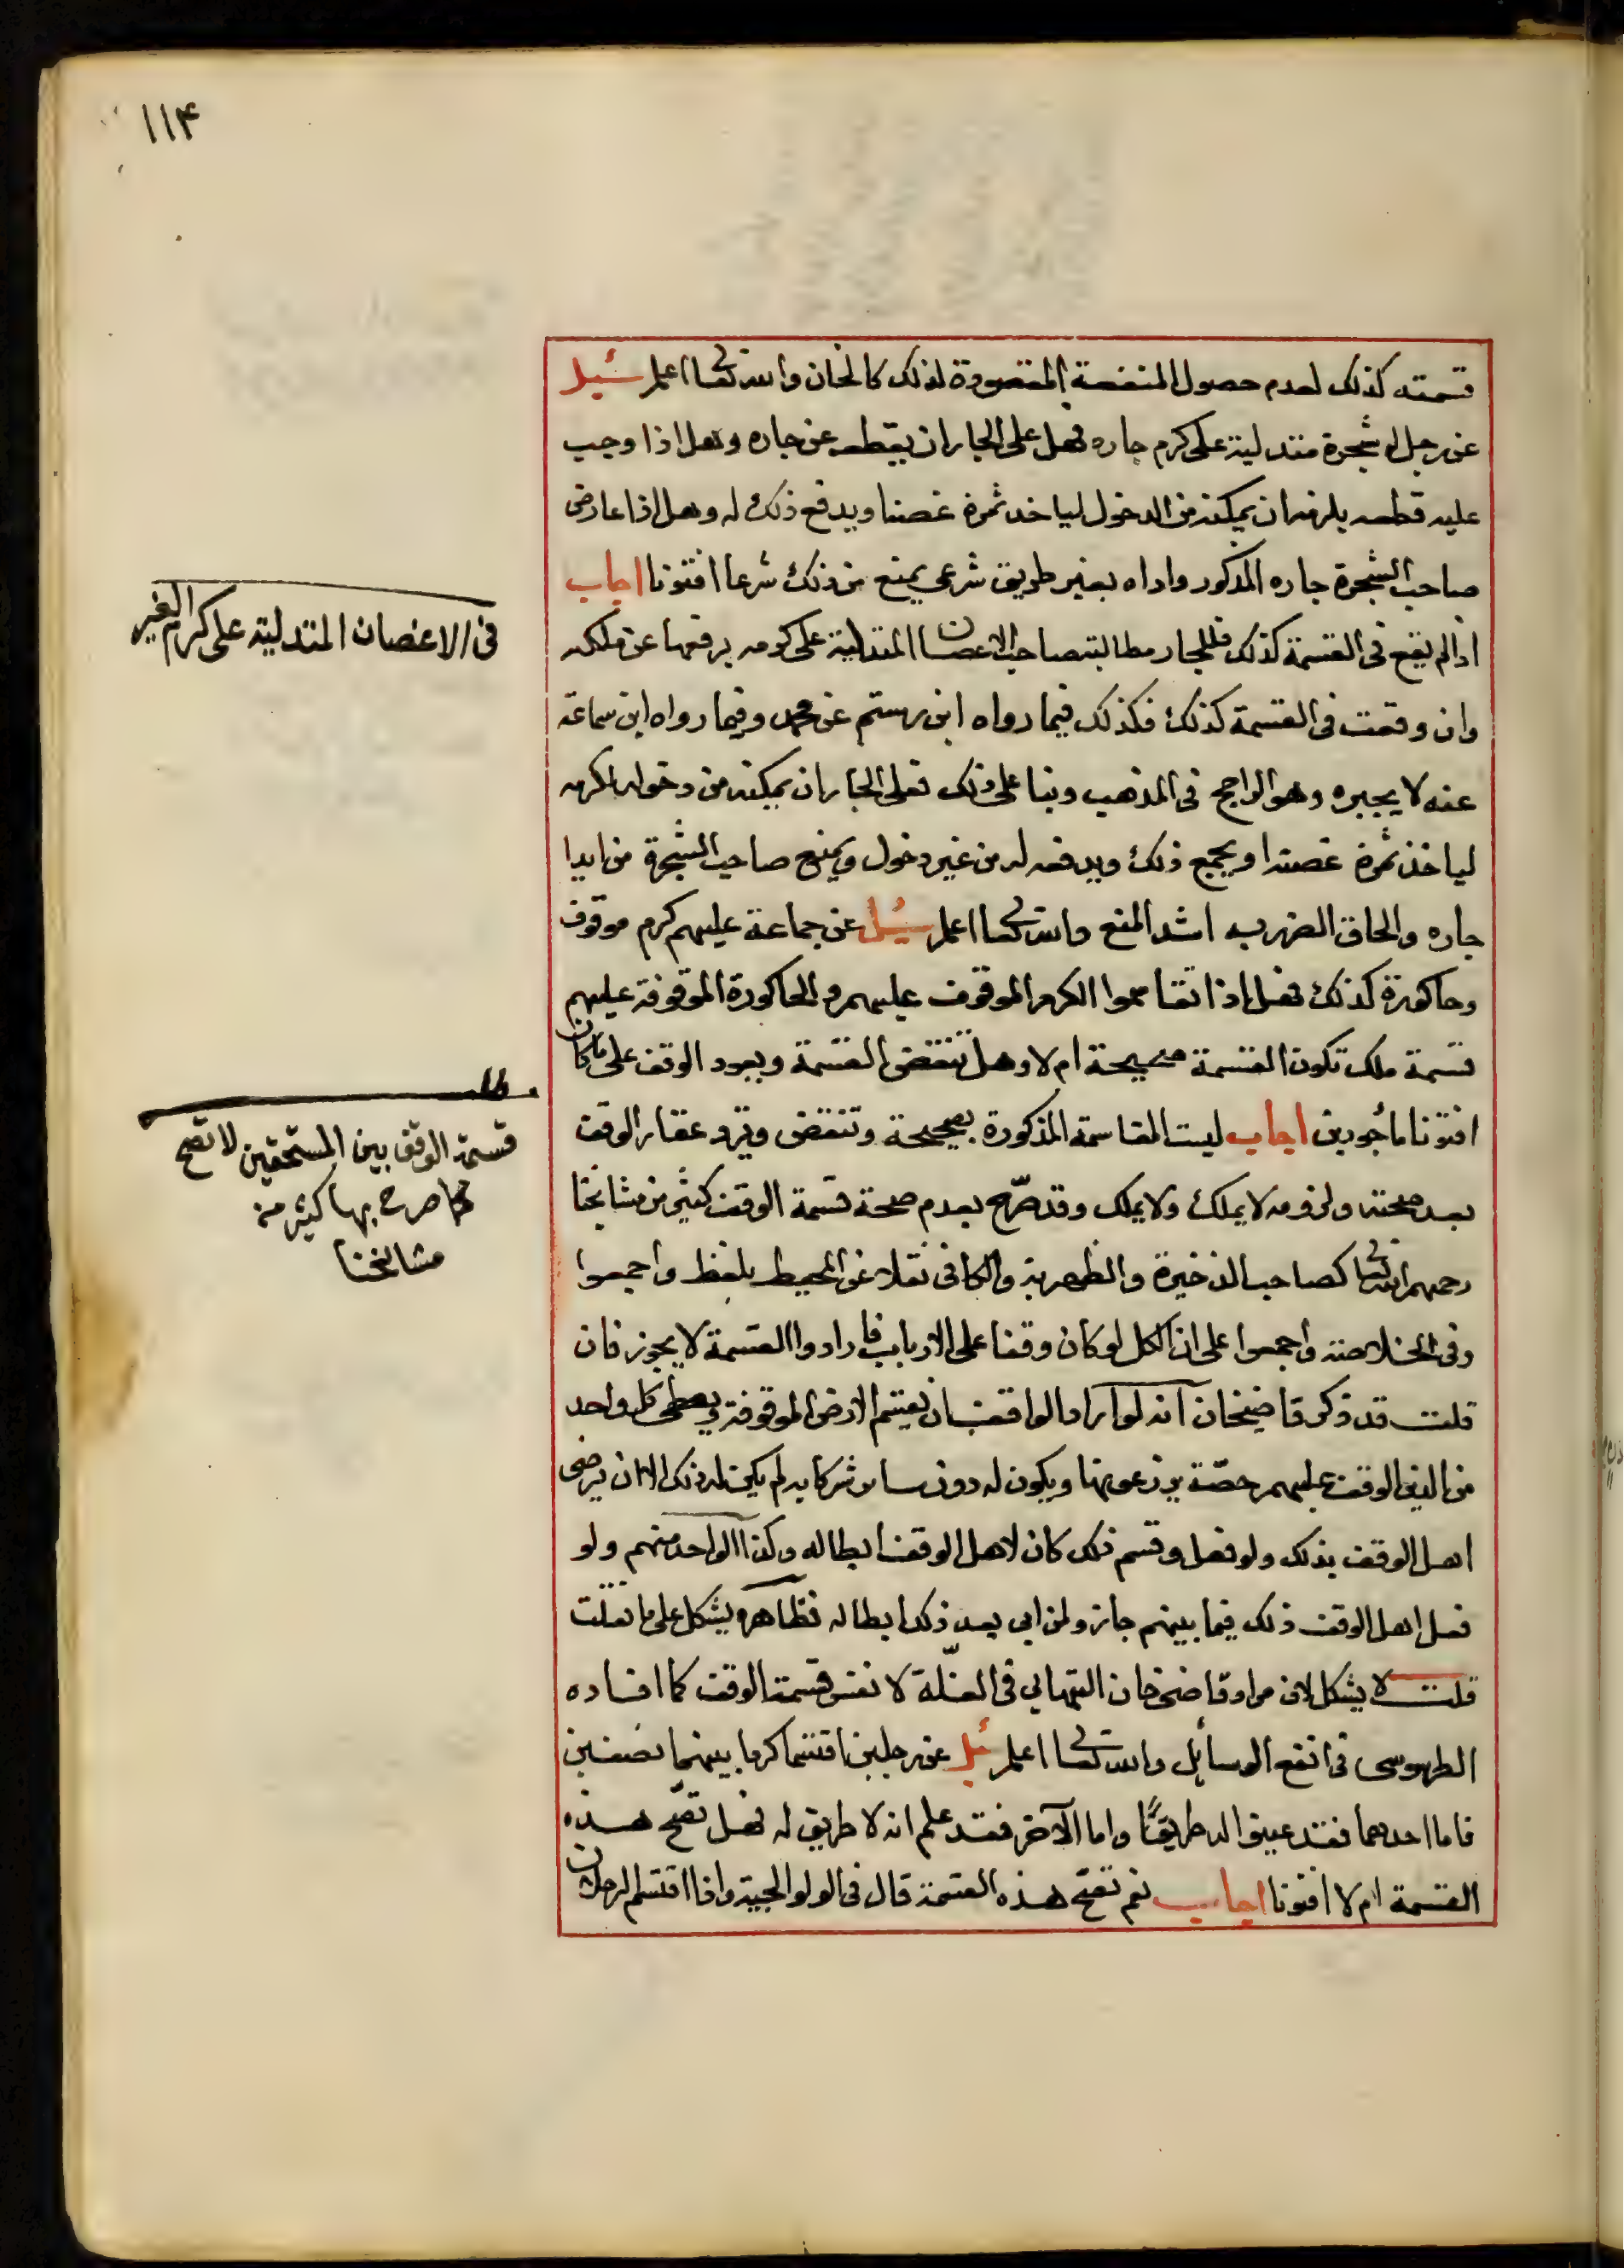 ١١٤
قسمته كذلك لعدم حصول المنفعة المقصودة لذلك كالخان والله تعالى اعلم سئل
عن رجل له شجرة متدلية على كرم جاره فهل على الجار ان يقطعه عن جاره وهل اذا وجب
عليه قطعه يلزمه ان يمكنه من الدخول لياخد ثمرة غصنا ويدفع ذلك له وهل اذا عارض
صاحب الشجرة جاره المذكور واداه بغير طريق شرعي يمنع من ذلك شرعا افتونا اجاب
اذا لم يقع في القسمة كذلك فللجار مطالبة صاحب الاغصان المتدلية على كرمه برفعها عن ملكه
وان وقعت في القسمة كذلك فكذلك فيما رواه ابن رستم عن محمد وفيما رواه ابن سماعة
عنه لا يجبره وهو الراجح في المذهب وبنا على ذلك فعلى الجار ان يمكنه من دخوله لكرمه
لياخذ ثمرة غصنه او يجمع ذلك ويدفعه له من غير دخول ويمنع صاحب الشجرة من ايدا
جاره والحاق الضرر به اشد المنع والله تعالى اعلم سئل عن جماعة عليهم كرم موقوف
وحاكورة كذلك فهل اذا تقاسموا الكرم الموقوف عليهم والحاكورة الموقوفة عليهم
قسمة ملك تكون القسمة صحيحة ام لا وهل تنتقض القسمة ويعود الوقف على ما كان
افتونا مأجورين اجاب ليست المقاسمة المذكورة بصحيحة وتنتقض ويرد عقار الوقف
بعد صحته ولزومه لا يملك ولا يملك وقد صرّح بعدم صحة قسمة الوقف كثير من مشايخنا
رحمهم الله تعالى كصاحب الذخيرة والظهرية والكافي نقلا عن المحيط بلفظ واجمعوا
وفي الخلاصة واجمعوا على ان الكل لو كان وقفا على الارباب فارادوا القسمة لا يجوز فان
قلت قد ذكر قاضيخان انه لو اراد الواقف ان يقسم الارض الموقوفة ويعطي كل واحد
من الذين الوقف عليهم حصّة يزرعونها ويكون له دون ساير شركايه لم يكن له ذلك الا ان يرضى
اهل الوقف بذلك ولو فعل وقسم ذلك كان لاهل الوقف ابطاله وكذا الواحد منهم ولو
فعل اهل الوقف ذلك فيما بينهم جاز ولمن ابى بعد ذلك ابطاله فظاهره يشكل على ما نقلت
قلت لا يشكل لان مراد قاضي خان التهايى في الغلّة لا نفس قسمة الوقف كما افاده
الطرسوسى في انفع الوسائل والله تعالى اعلم سئل عن رجلين اقتسما كرما بينهما نصفين
فاما احدهما فقد عين له طريقًا واما الآخر فقد علم انه لا طريق له فهل تصّح هذه
القسمة ام لا افتونا اجاب نعم تصّح هذه القسمة قال في الولوالجية واذا اقتسم الرجلان
في الاغصان المتدلية على كرم الغير
مطلب
قسمة الوقف بين المستحقين لا تصح
كما صرح بها كثير من
مشايخنا